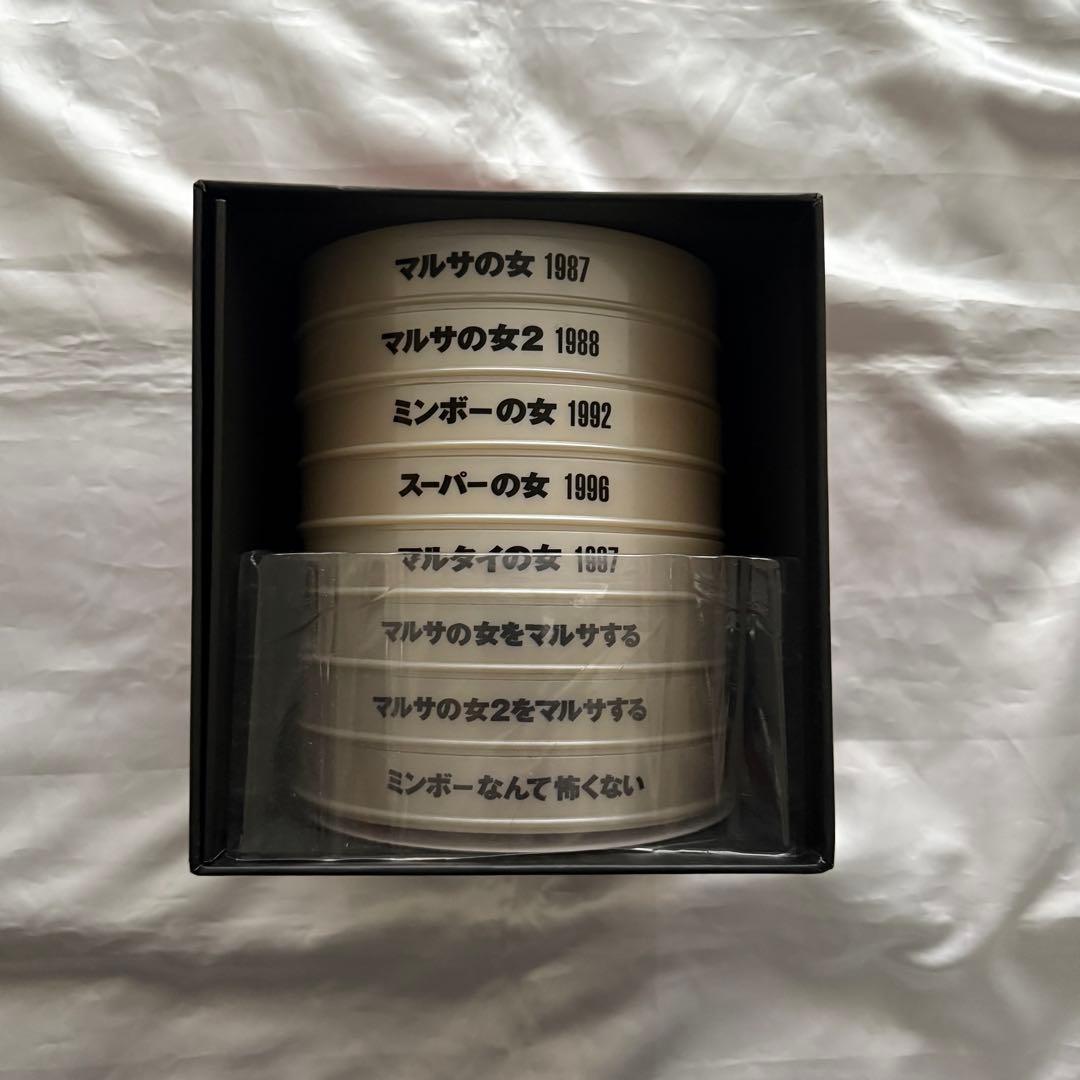 マルサの女 1987
マルサの女2 1988
ミンボーの女 1992
スーパーの女 1996
マルタイの女 1997
マルサの女をマルサする
マルサの女2をマルサする
ミンボーなんて怖くない